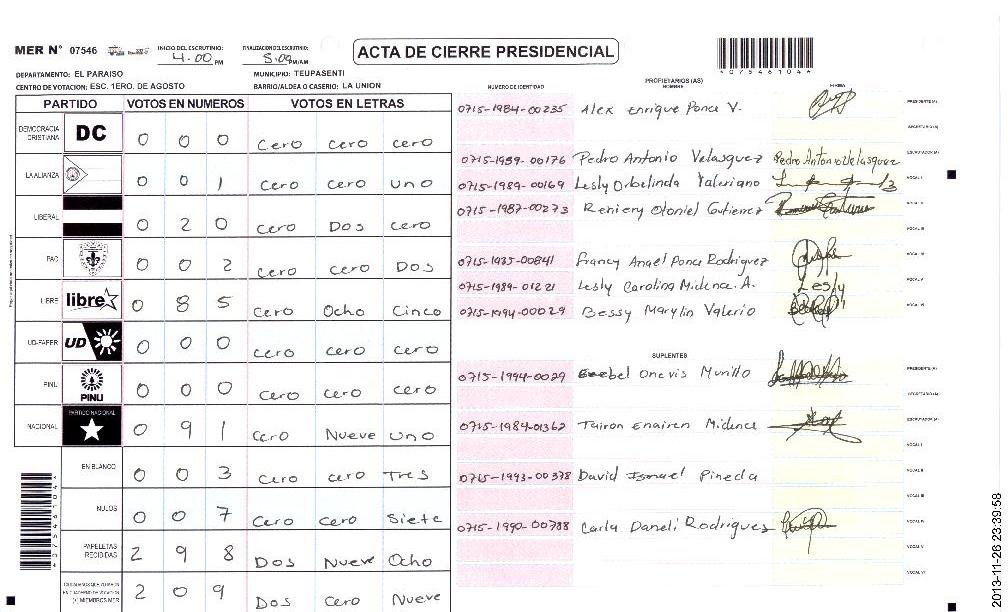 MER N° 07546
INICIO DEL ESCRUTINIO: 4.00 PM
FINALIZACION DEL ESCRUTINIO: 5.00 PM/AM
ACTA DE CIERRE PRESIDENCIAL
DEPARTAMENTO: EL PARAISO
MUNICIPIO: TEUPASENTI
CENTRO DE VOTACION: ESC. 1ERO. DE AGOSTO
BARRIO/ALDEA O CASERIO: LA UNION
PARTIDO VOTOS EN NUMEROS VOTOS EN LETRAS
DEMOCRACIA CRISTIANA DC 0 0 0 Cero cero cero
LA ALIANZA 0 0 1 cero cero uno
LIBERAL 0 2 0 cero Dos cero
PAC 0 0 2 cero cero Dos
LIBRE libre 0 8 5 Cero Ocho Cinco
UD-FAPER UD 0 0 0 cero cero cero
PINU PINU 0 0 0 cero cero cero
NACIONAL PARTIDO NACIONAL 0 9 1 cero Nueve uno
EN BLANCO 0 0 3 cero cero Tres
NULOS 0 0 7 Cero cero Siete
PAPELETAS RECIBIDAS 2 9 8 Dos Nueve Ocho
2 0 9 Dos Cero Nueve
NUMERO DE IDENTIDAD
PROPIETARIOS (AS)
NOMBRE
FIRMA
0715-1984-00235 Alex Enrique Ponce V. PRESIDENTE (A)
SECRETARIO (A)
0715-1959-00176 Pedro Antonio Velasquez Pedro Antonio Velasquez ESCRUTADOR (A)
0715-1989-00169 Lesly Orbelinda Valeriano VOCAL I
0715-1987-00273 Reniery Otoniel Gutierrez VOCAL II
VOCAL III
0715-1985-00841 Francy Angel Ponce Rodriguez VOCAL IV
0715-1989-01221 Lesly Carolina Midence. A. Lesly VOCAL V
0715-1994-00029 Bessy Marylin Valerio VOCAL VI
SUPLENTES
0715-1994-0029 Onevis Murillo PRESIDENTE (A)
SECRETARIO (A)
0715-1984-01362 Tairon Enairen Midence ESCRUTADOR (A)
VOCAL I
0715-1993-00378 David Ismael Pineda VOCAL II
VOCAL III
0715-1990-00788 Carla Daneli Rodrigues VOCAL IV
VOCAL V
VOCAL VI
2013-11-26 23:39:58